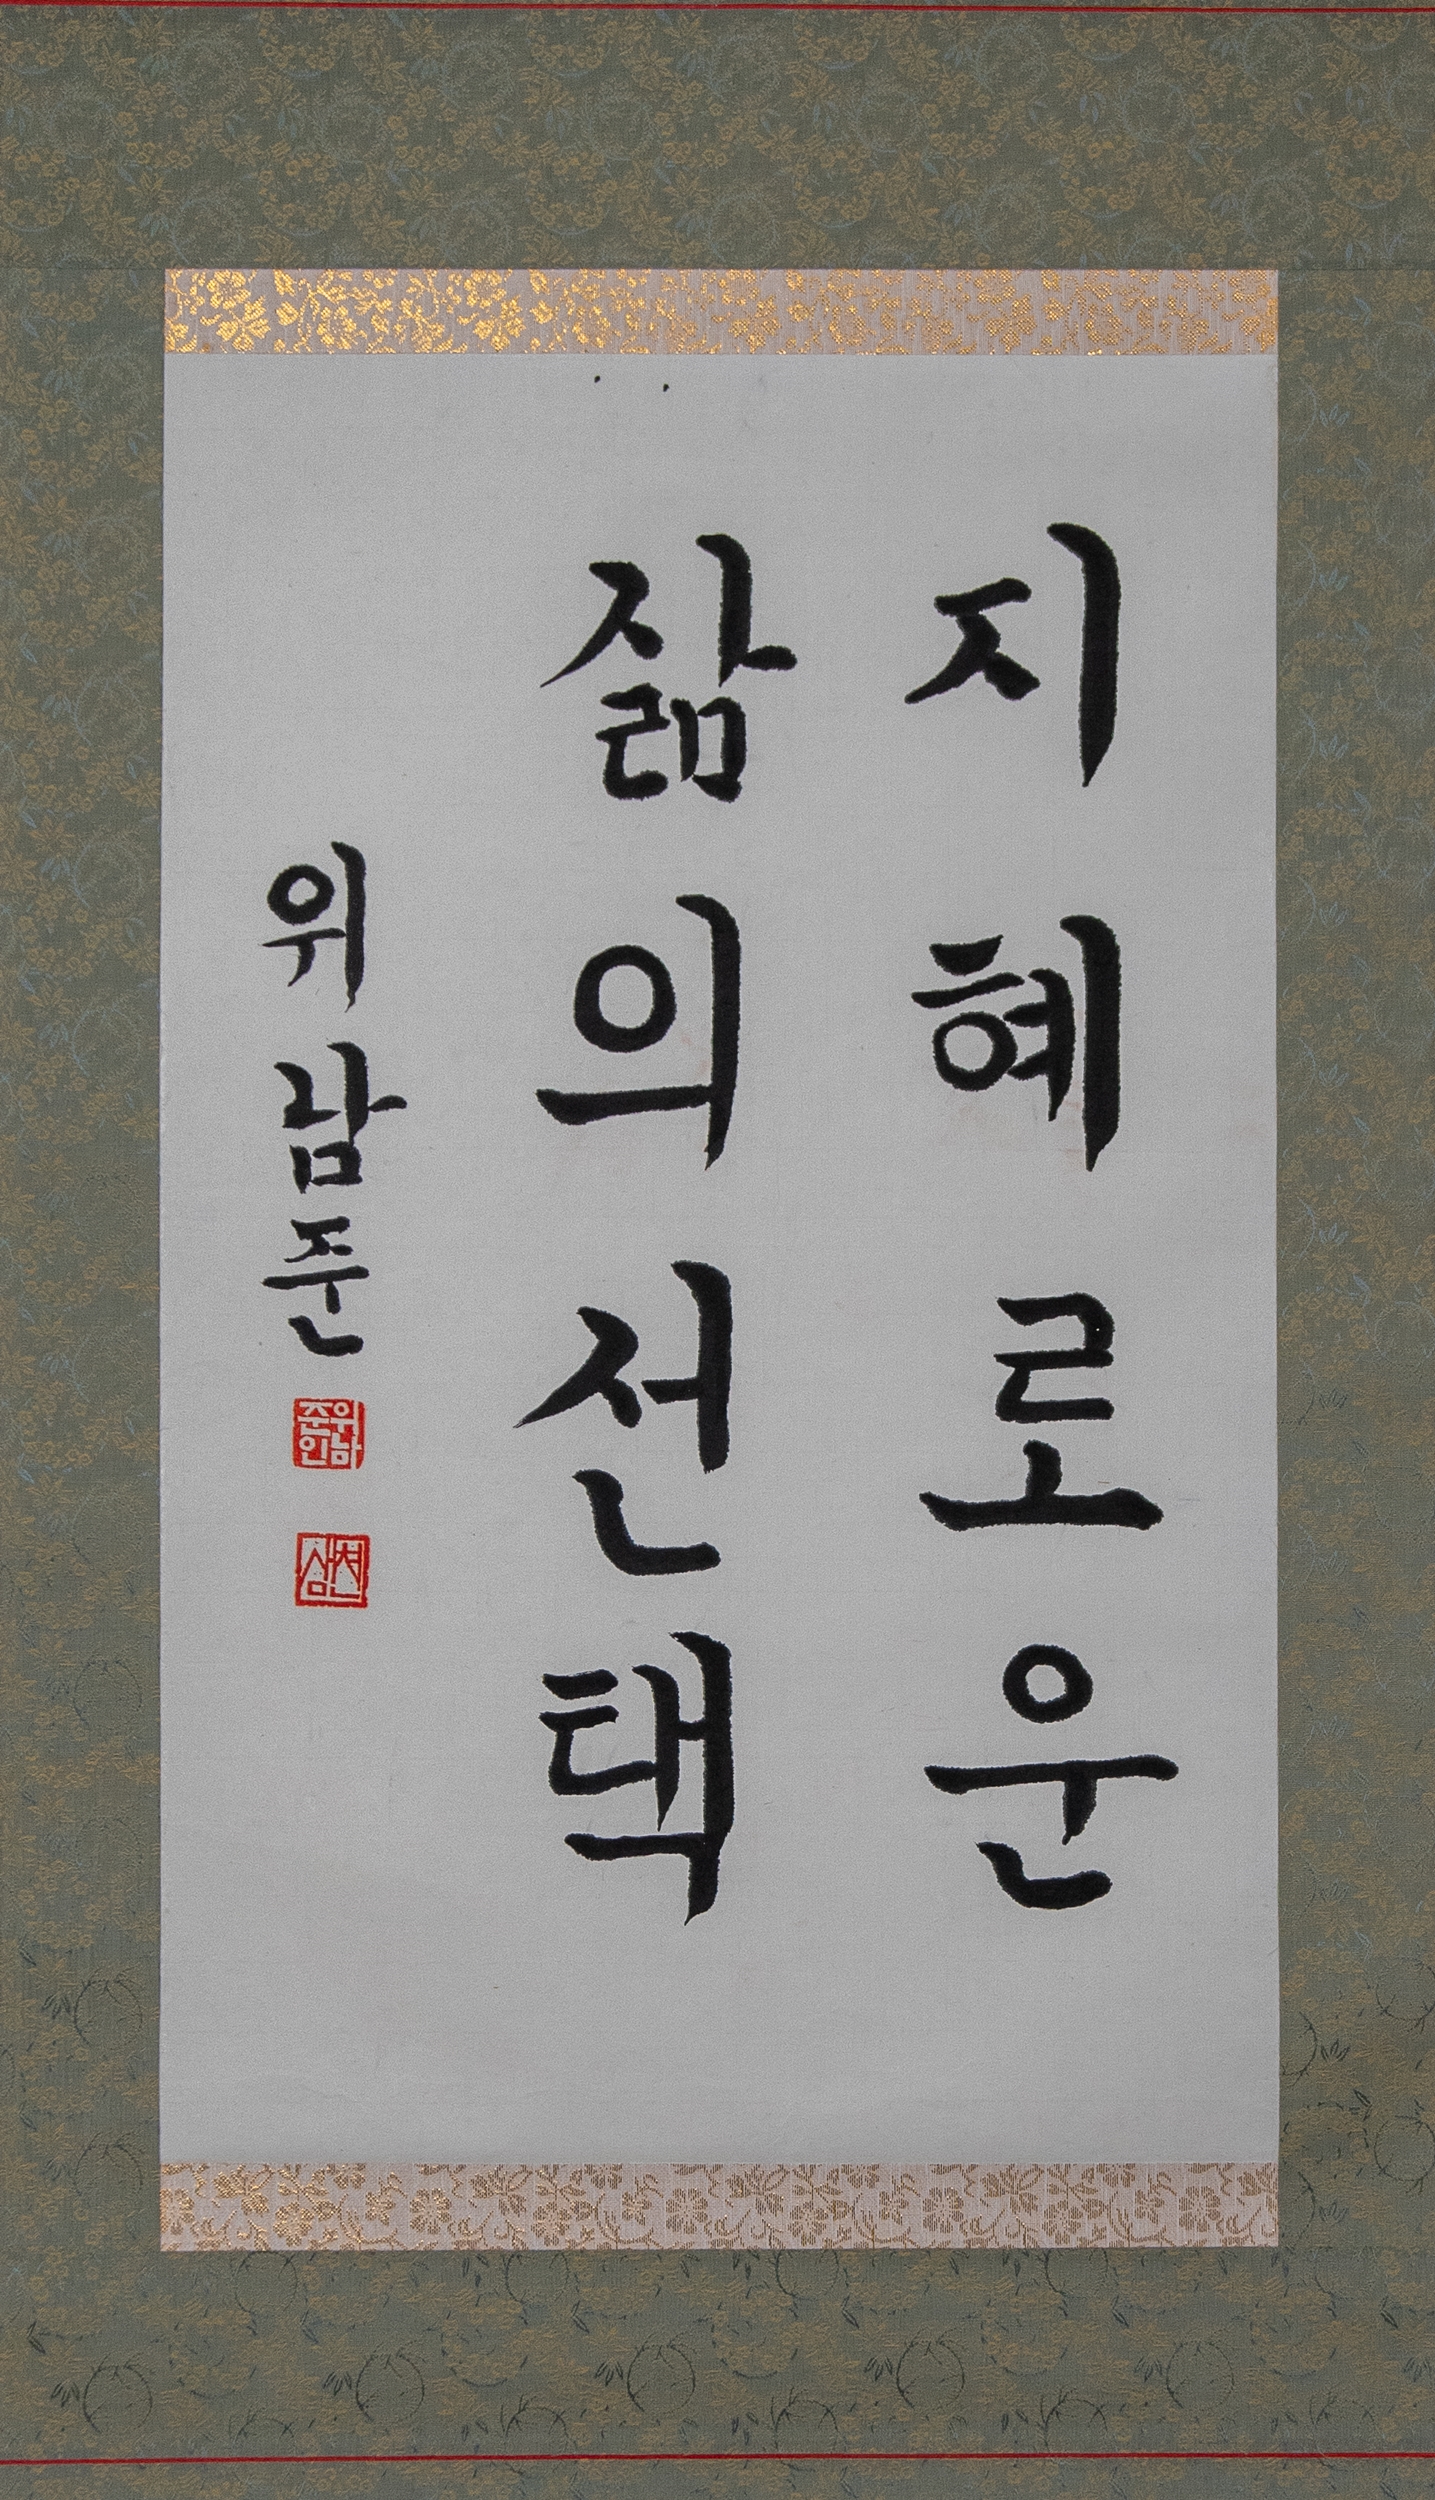 지혜로운
삶의선택
위남준
위남준인
천삼